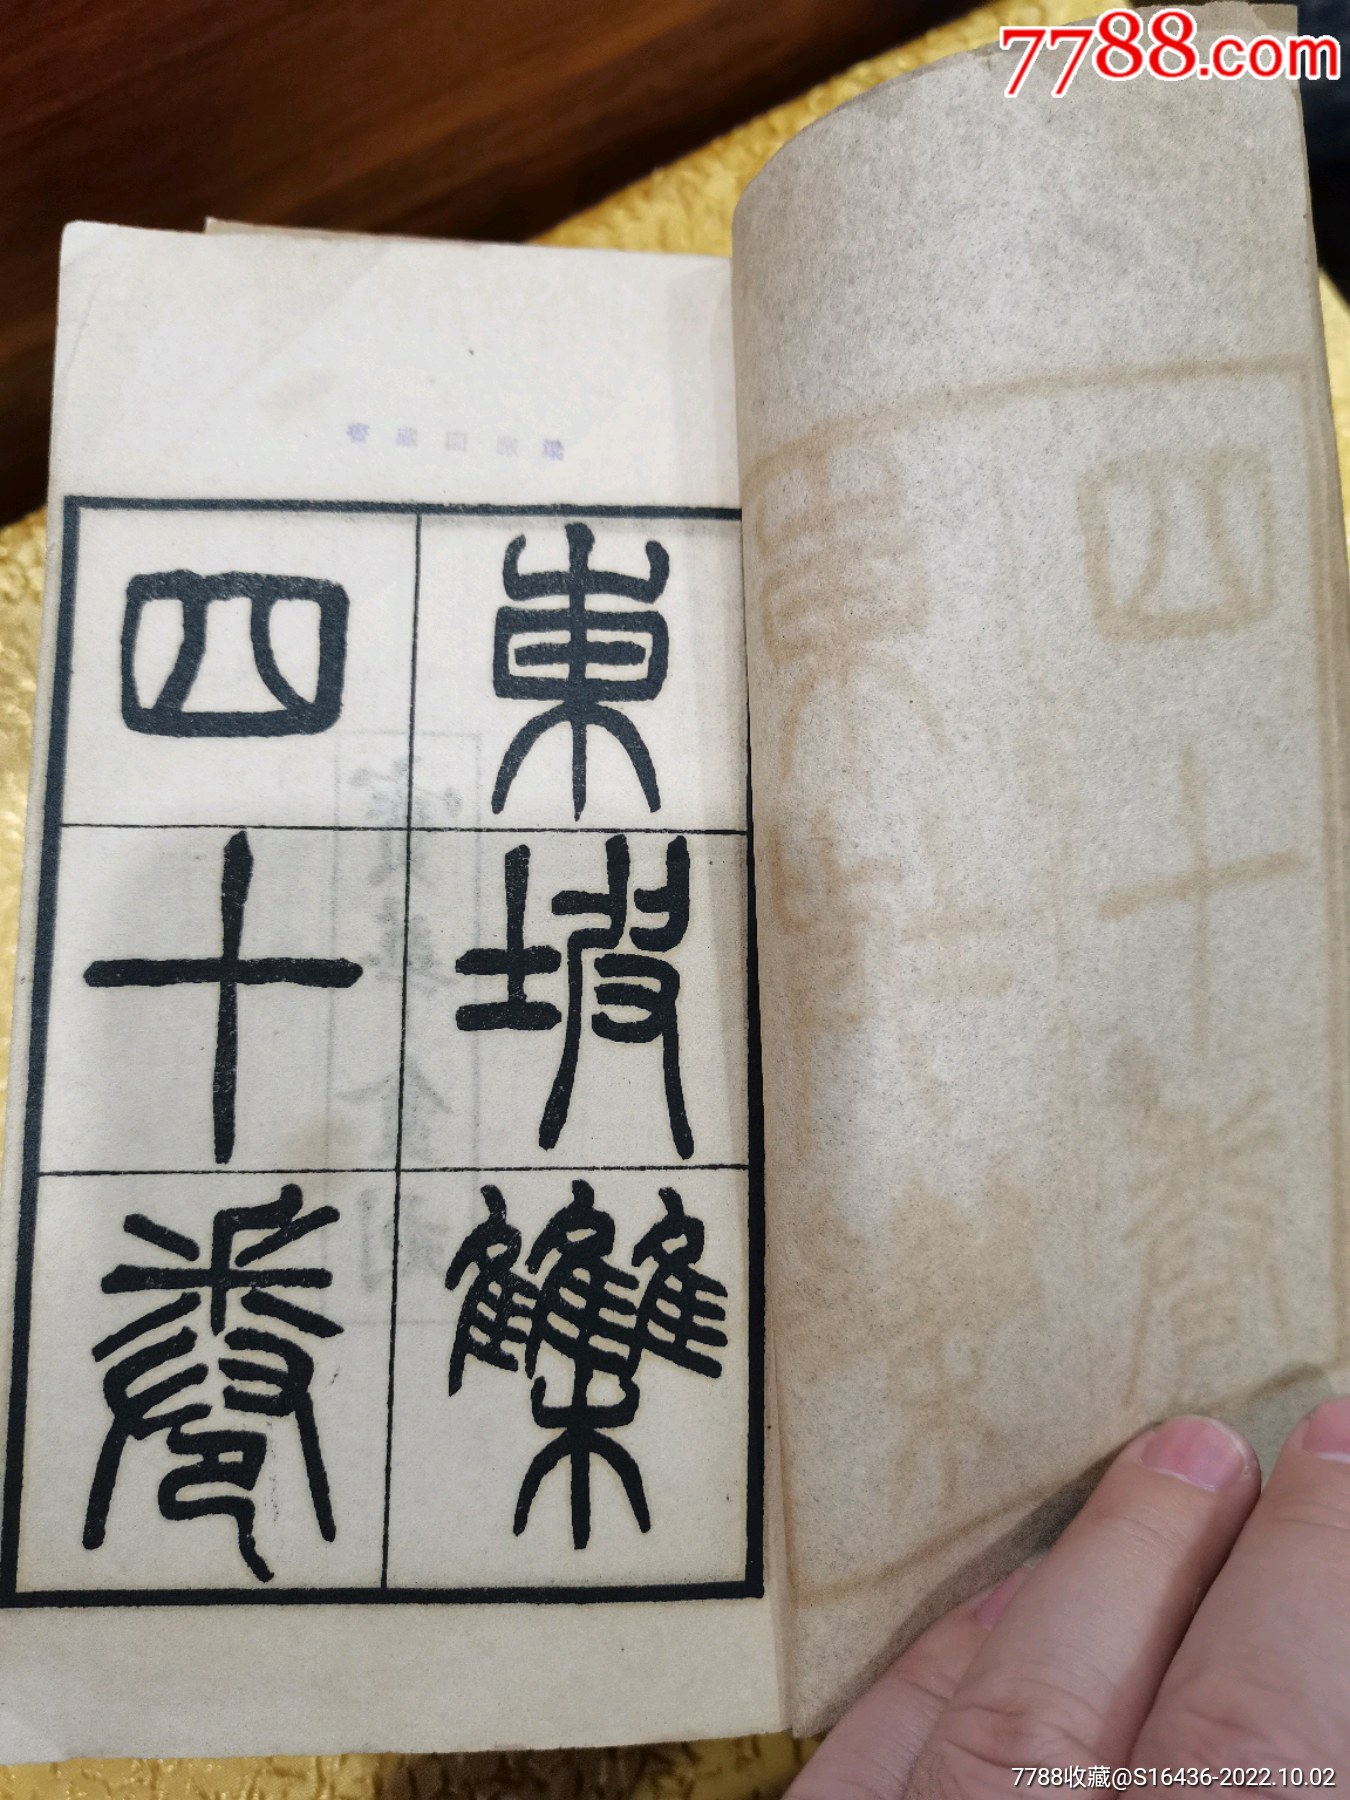 7788.com
東坡集
四十卷
四十
7788收藏@S16436-2022.10.02